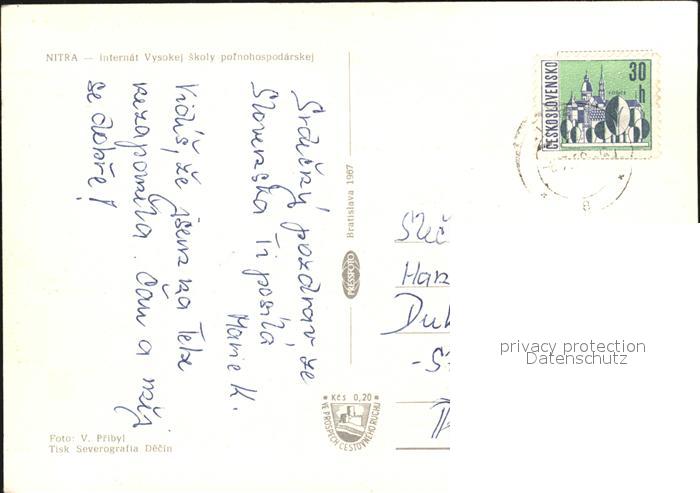 NITRA — Internát Vysokej školy poľnohospodárskej
Srdečný pozdrav ze
Slovenska Ti posílá
Marie K.
Vidíš, že jsem na Tebe
nezapomněla. Čau a měj
se dobře!
Bratislava 1967
PRESSFOTO
ČESKOSLOVENSKO
30
h
KOŠICE
Kčs 0,20
VE PROSPĚCH CESTOVNÉHO RUCHU
Sleč
Han
Duk
privacy protection
Datenschutz
Foto: V. Přibyl
Tisk Severografia Děčín